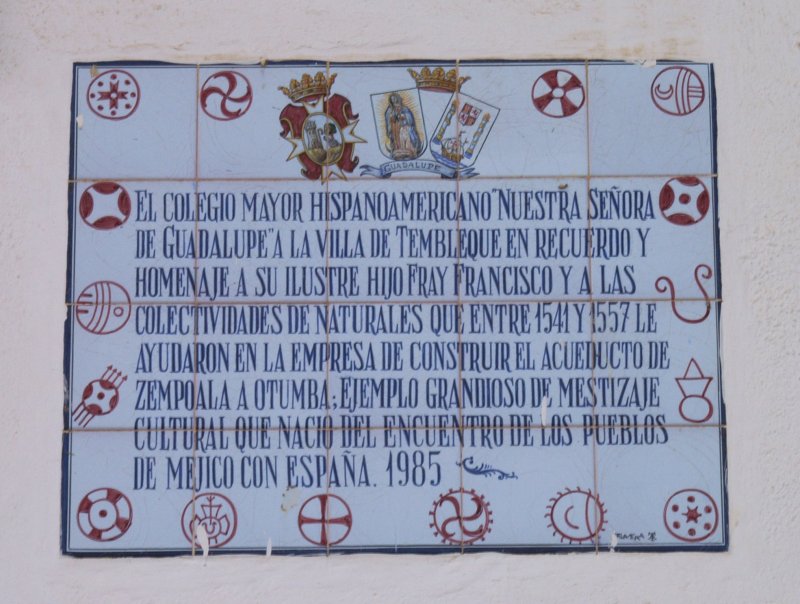 GUADALUPE
EL COLEGIO MAYOR HISPANOAMERICANO "NUESTRA SEÑORA
DE GUADALUPE" A LA VILLA DE TEMBLEQUE EN RECUERDO Y
HOMENAJE A SU ILUSTRE HIJO FRAY FRANCISCO Y A LAS
COLECTIVIDADES DE NATURALES QUE ENTRE 1541 Y 1557 LE
AYUDARON EN LA EMPRESA DE CONSTRUIR EL ACUEDUCTO DE
ZEMPOALA A OTUMBA; EJEMPLO GRANDIOSO DE MESTIZAJE
CULTURAL QUE NACIO DEL ENCUENTRO DE LOS PUEBLOS
DE MEJICO CON ESPAÑA. 1985